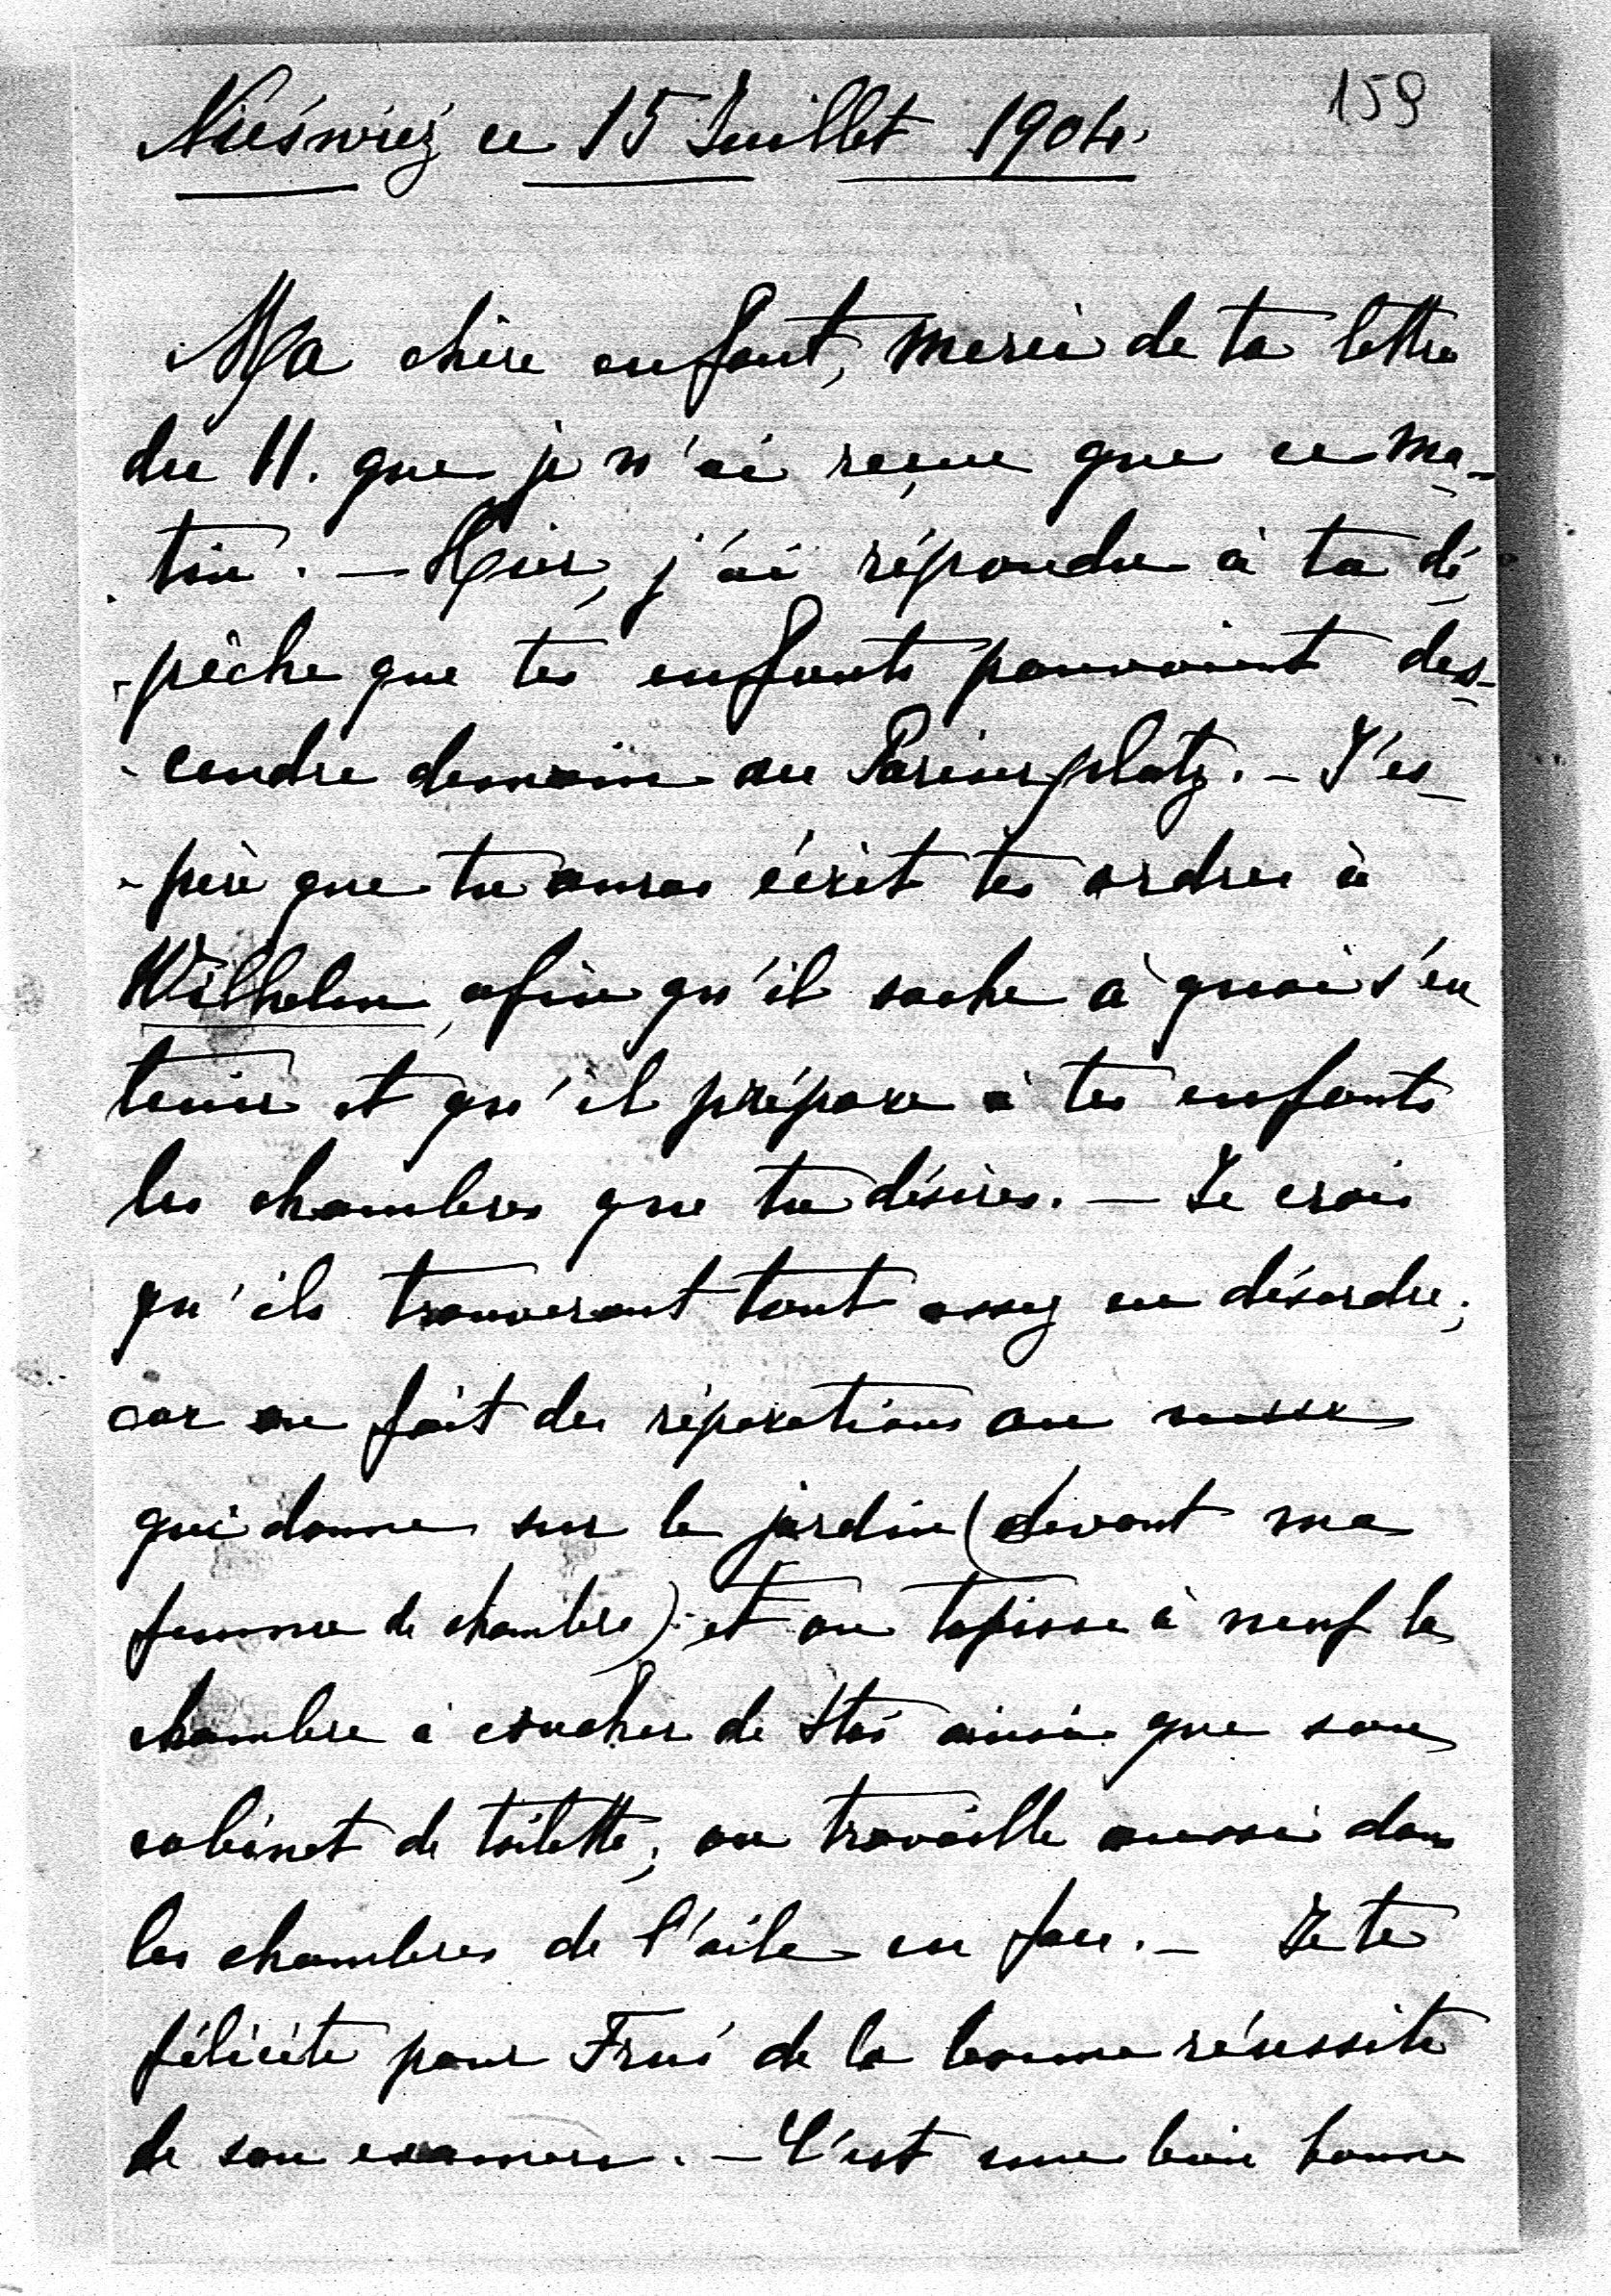 159
Nieśwież ce 15 Juillet 1904.
Ma chère enfant, merci de ta lettre
du 11. que je n'ai reçue que ce ma-
tin. — Hier, j'ai répondu à ta dé-
-pêche que tes enfants pouvaient des-
-cendre demain au Pariserplatz. — J'es-
-père que tu auras écrit tes ordres à
Wilhelm, afin qu'il sache à quoi s'en
tenir et qu'il prépare à tes enfants
les chambres que tu désires. — Je crois
qu'ils trouveront tout assez en désordre;
car on fait des réparations au
qui donne sur le jardin (devant ma
femme de chambre); et on tapisse à neuf la
chambre à coucher de Staś ainsi que son
cabinet de toilette; on travaille aussi dans
les chambres de l'aile en face. — Je te
félicite pour Fruś de la bonne réussite
de son examen. — C'est une bien bonne